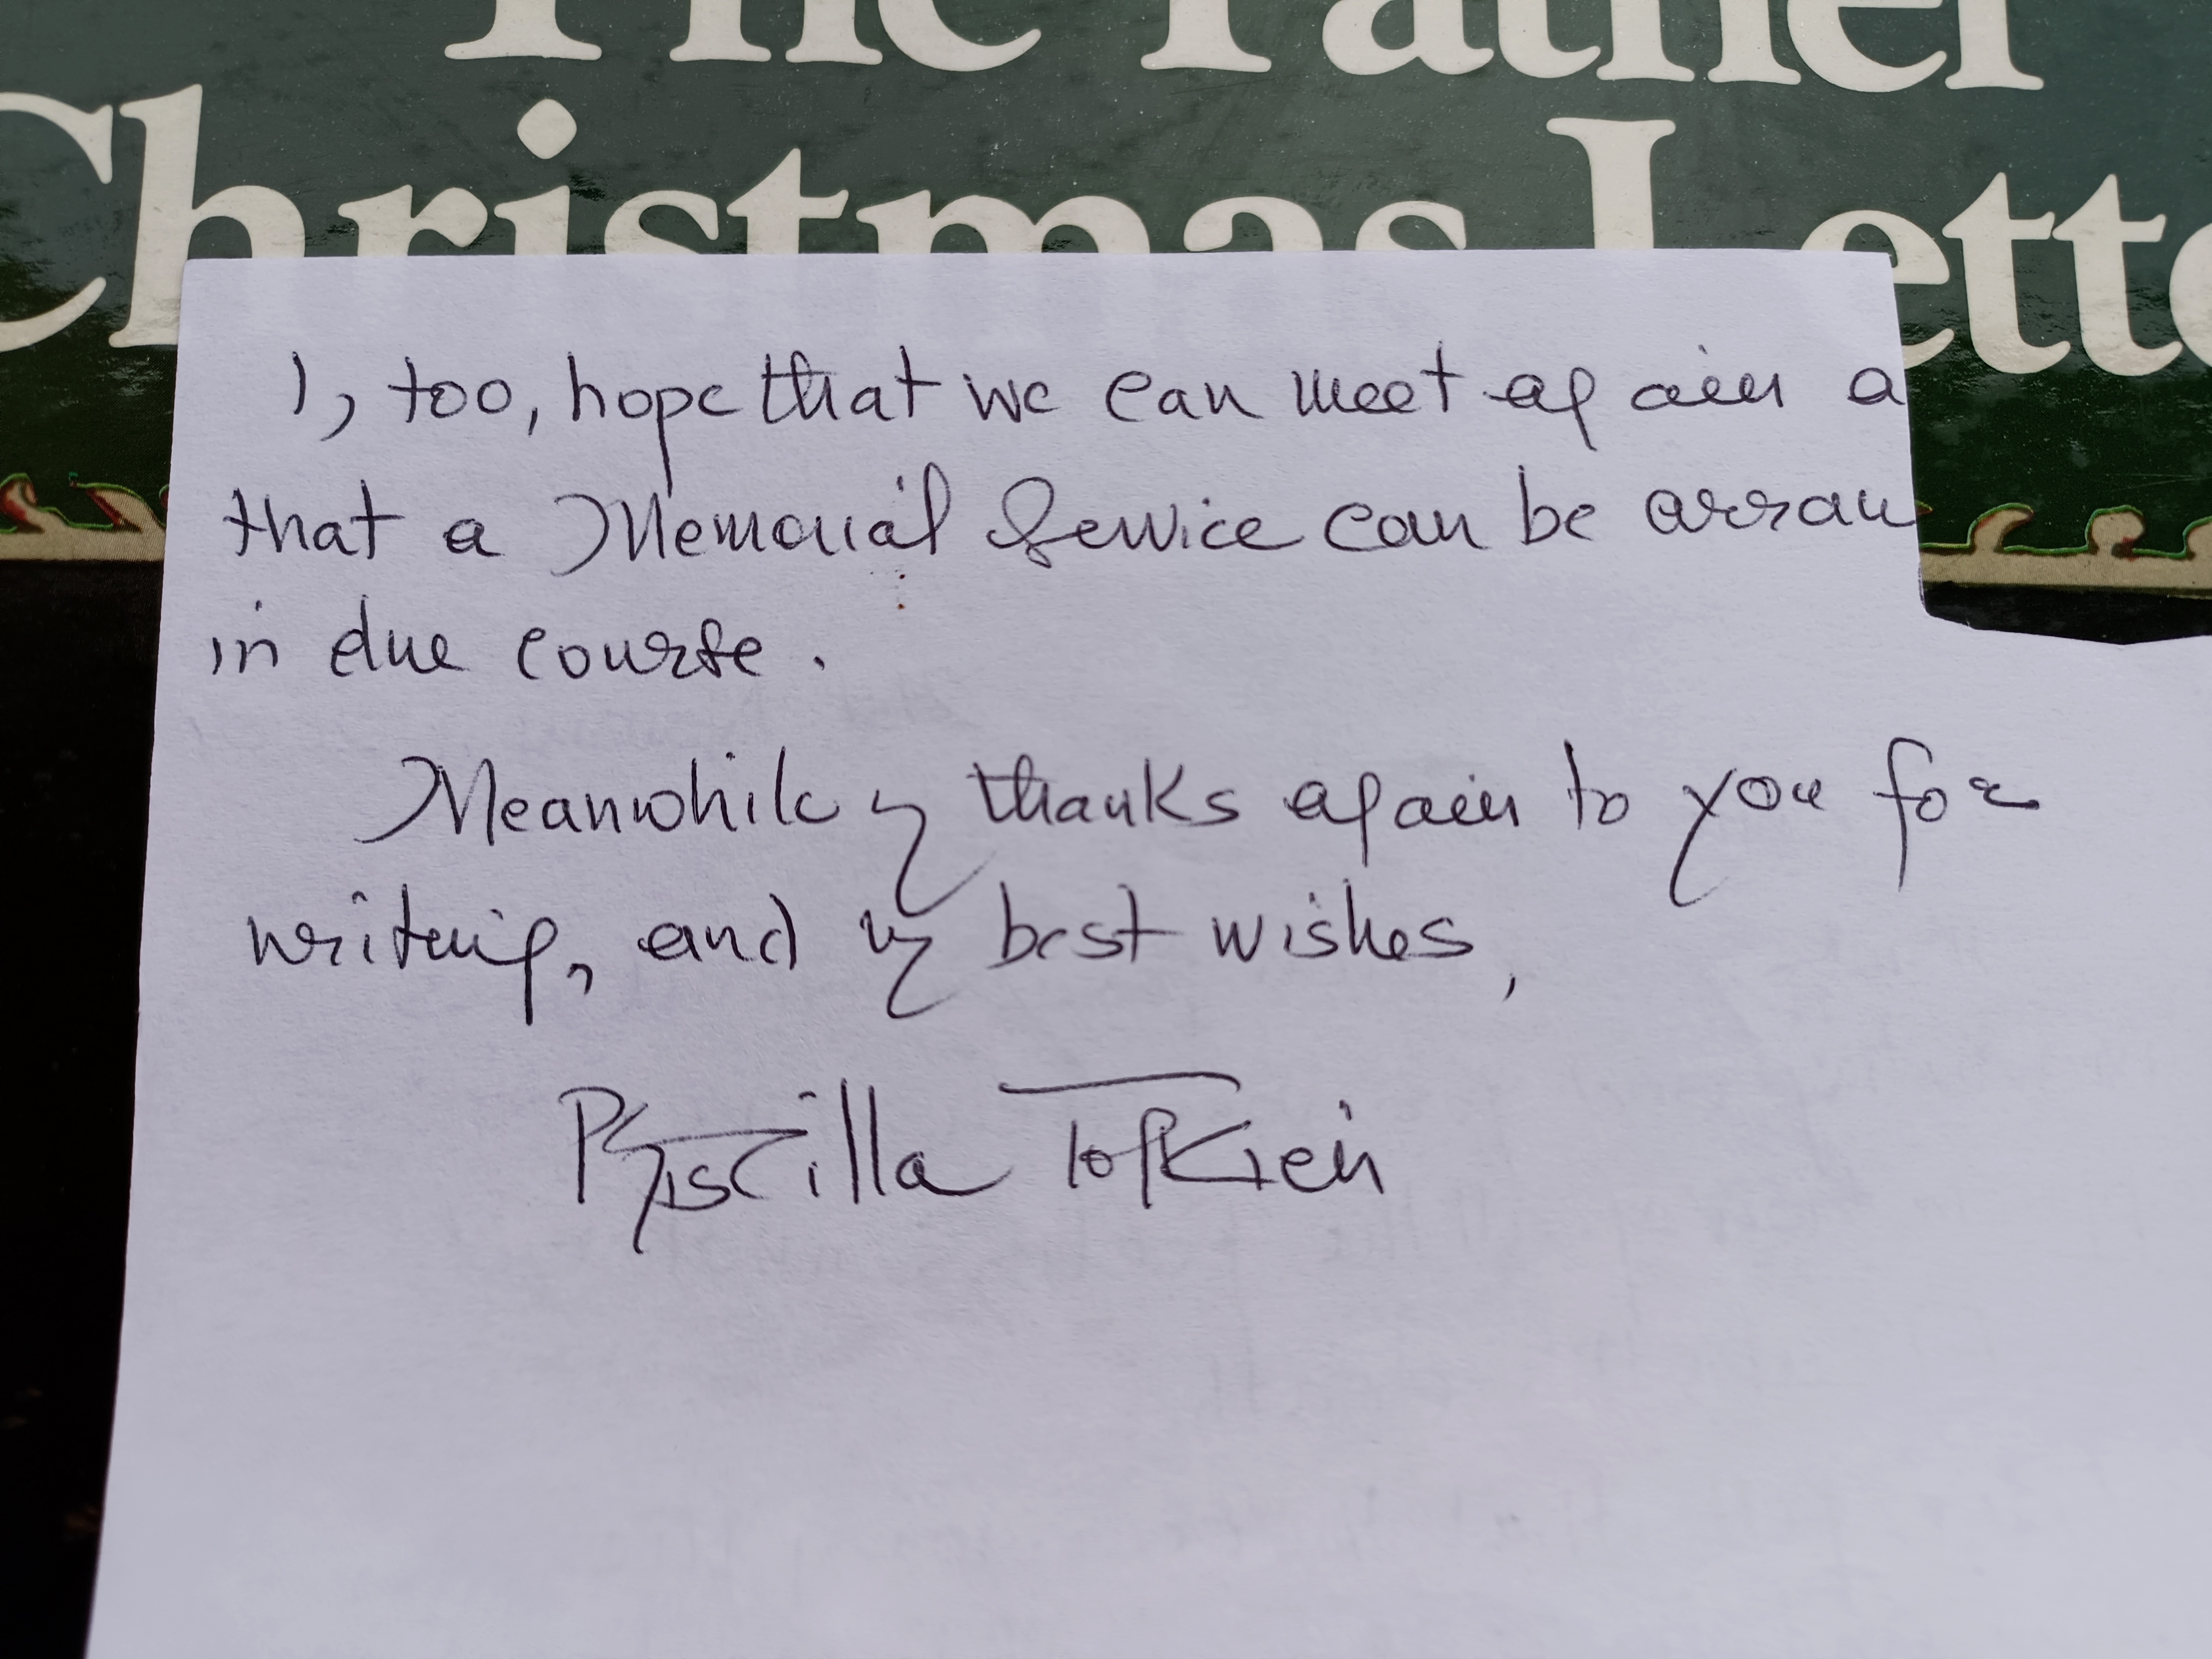 The Father
Christmas Lette
I, too, hope that we can meet again a
that a Memorial Service can be arran
in due course.
Meanwhile, thanks again to you for
writing, and my best wishes,
Priscilla Tolkien